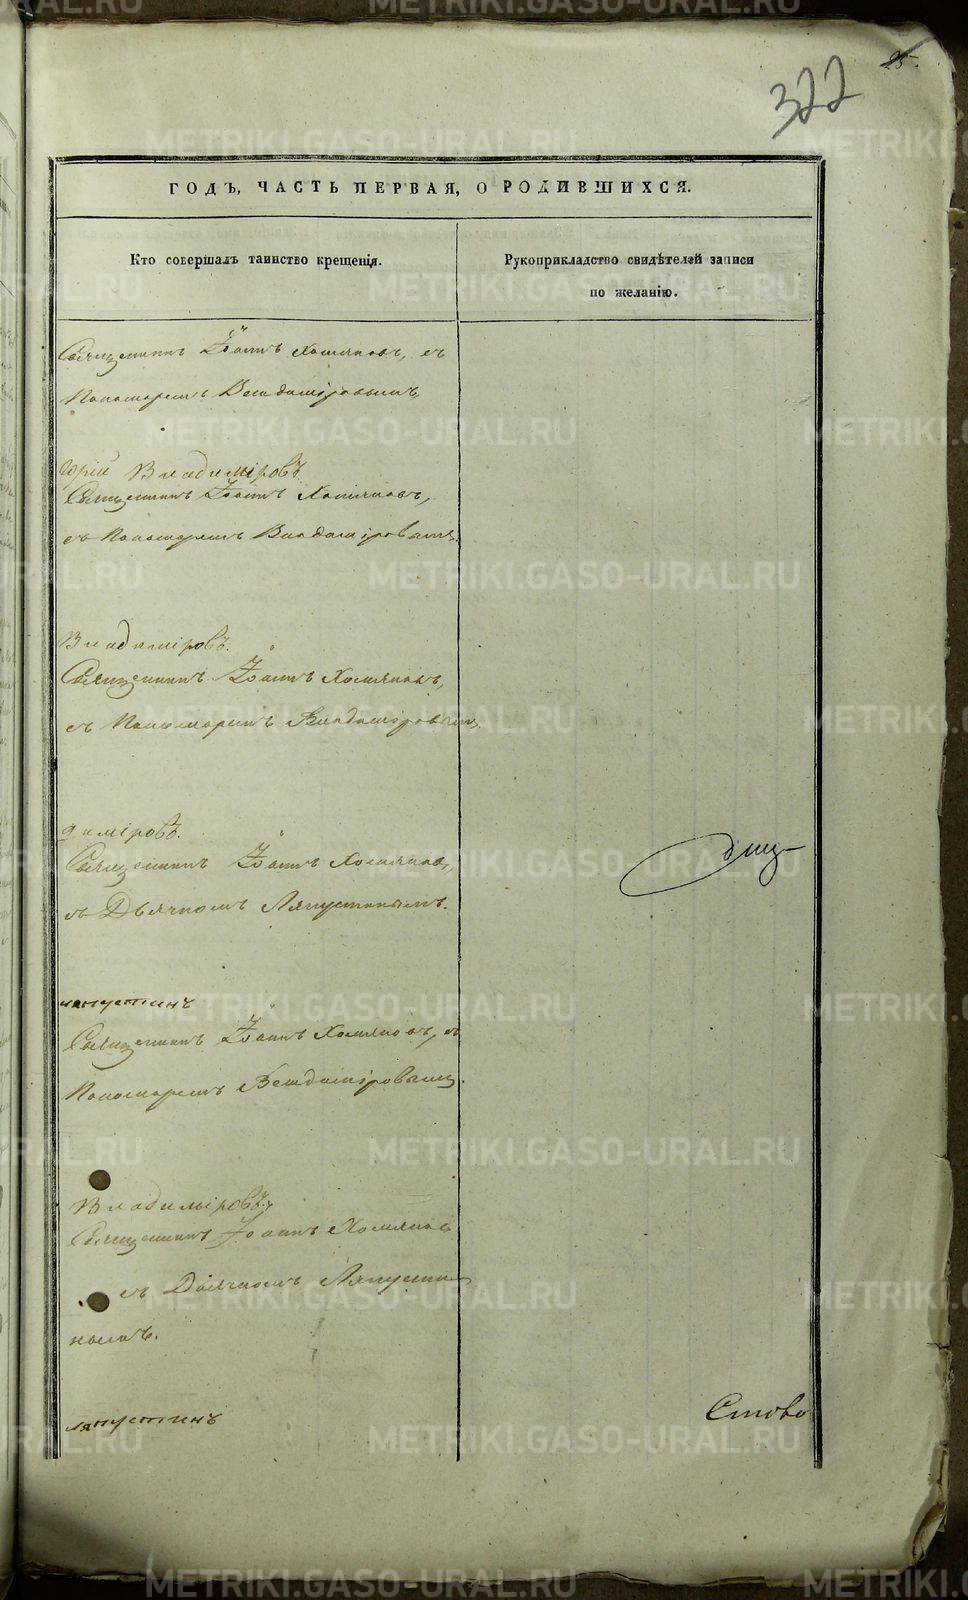 25.
322
ГОДЪ, ЧАСТЬ ПЕРВАЯ, О РОДИВШИХСЯ.
Кто совершалъ таинство крещенія.
Рукоприкладство свидѣтелей записи
по желанію.
Священникъ Іоаннъ Хомяковъ, съ
Пономаремъ Владиміровымъ,
Юрій Владиміровъ
Священникъ Іоаннъ Хомяковъ,
съ Пономаремъ Владиміровымъ,
Владиміровъ.
Священникъ Іоаннъ Хомяковъ,
съ Пономаремъ Владиміровымъ,
диміровъ.
Священникъ Іоаннъ Хомяковъ,
съ Дьячкомъ Ляпустинымъ.
ляпустинъ
Священникъ Іоаннъ Хомяковъ, съ
Пономаремъ Владиміровымъ.
Владиміровъ
Священникъ Іоаннъ Хомяковъ
съ Дьячкомъ Ляпусти
нымъ.
ляпустинъ
METRIKI.GASO-URAL.RU